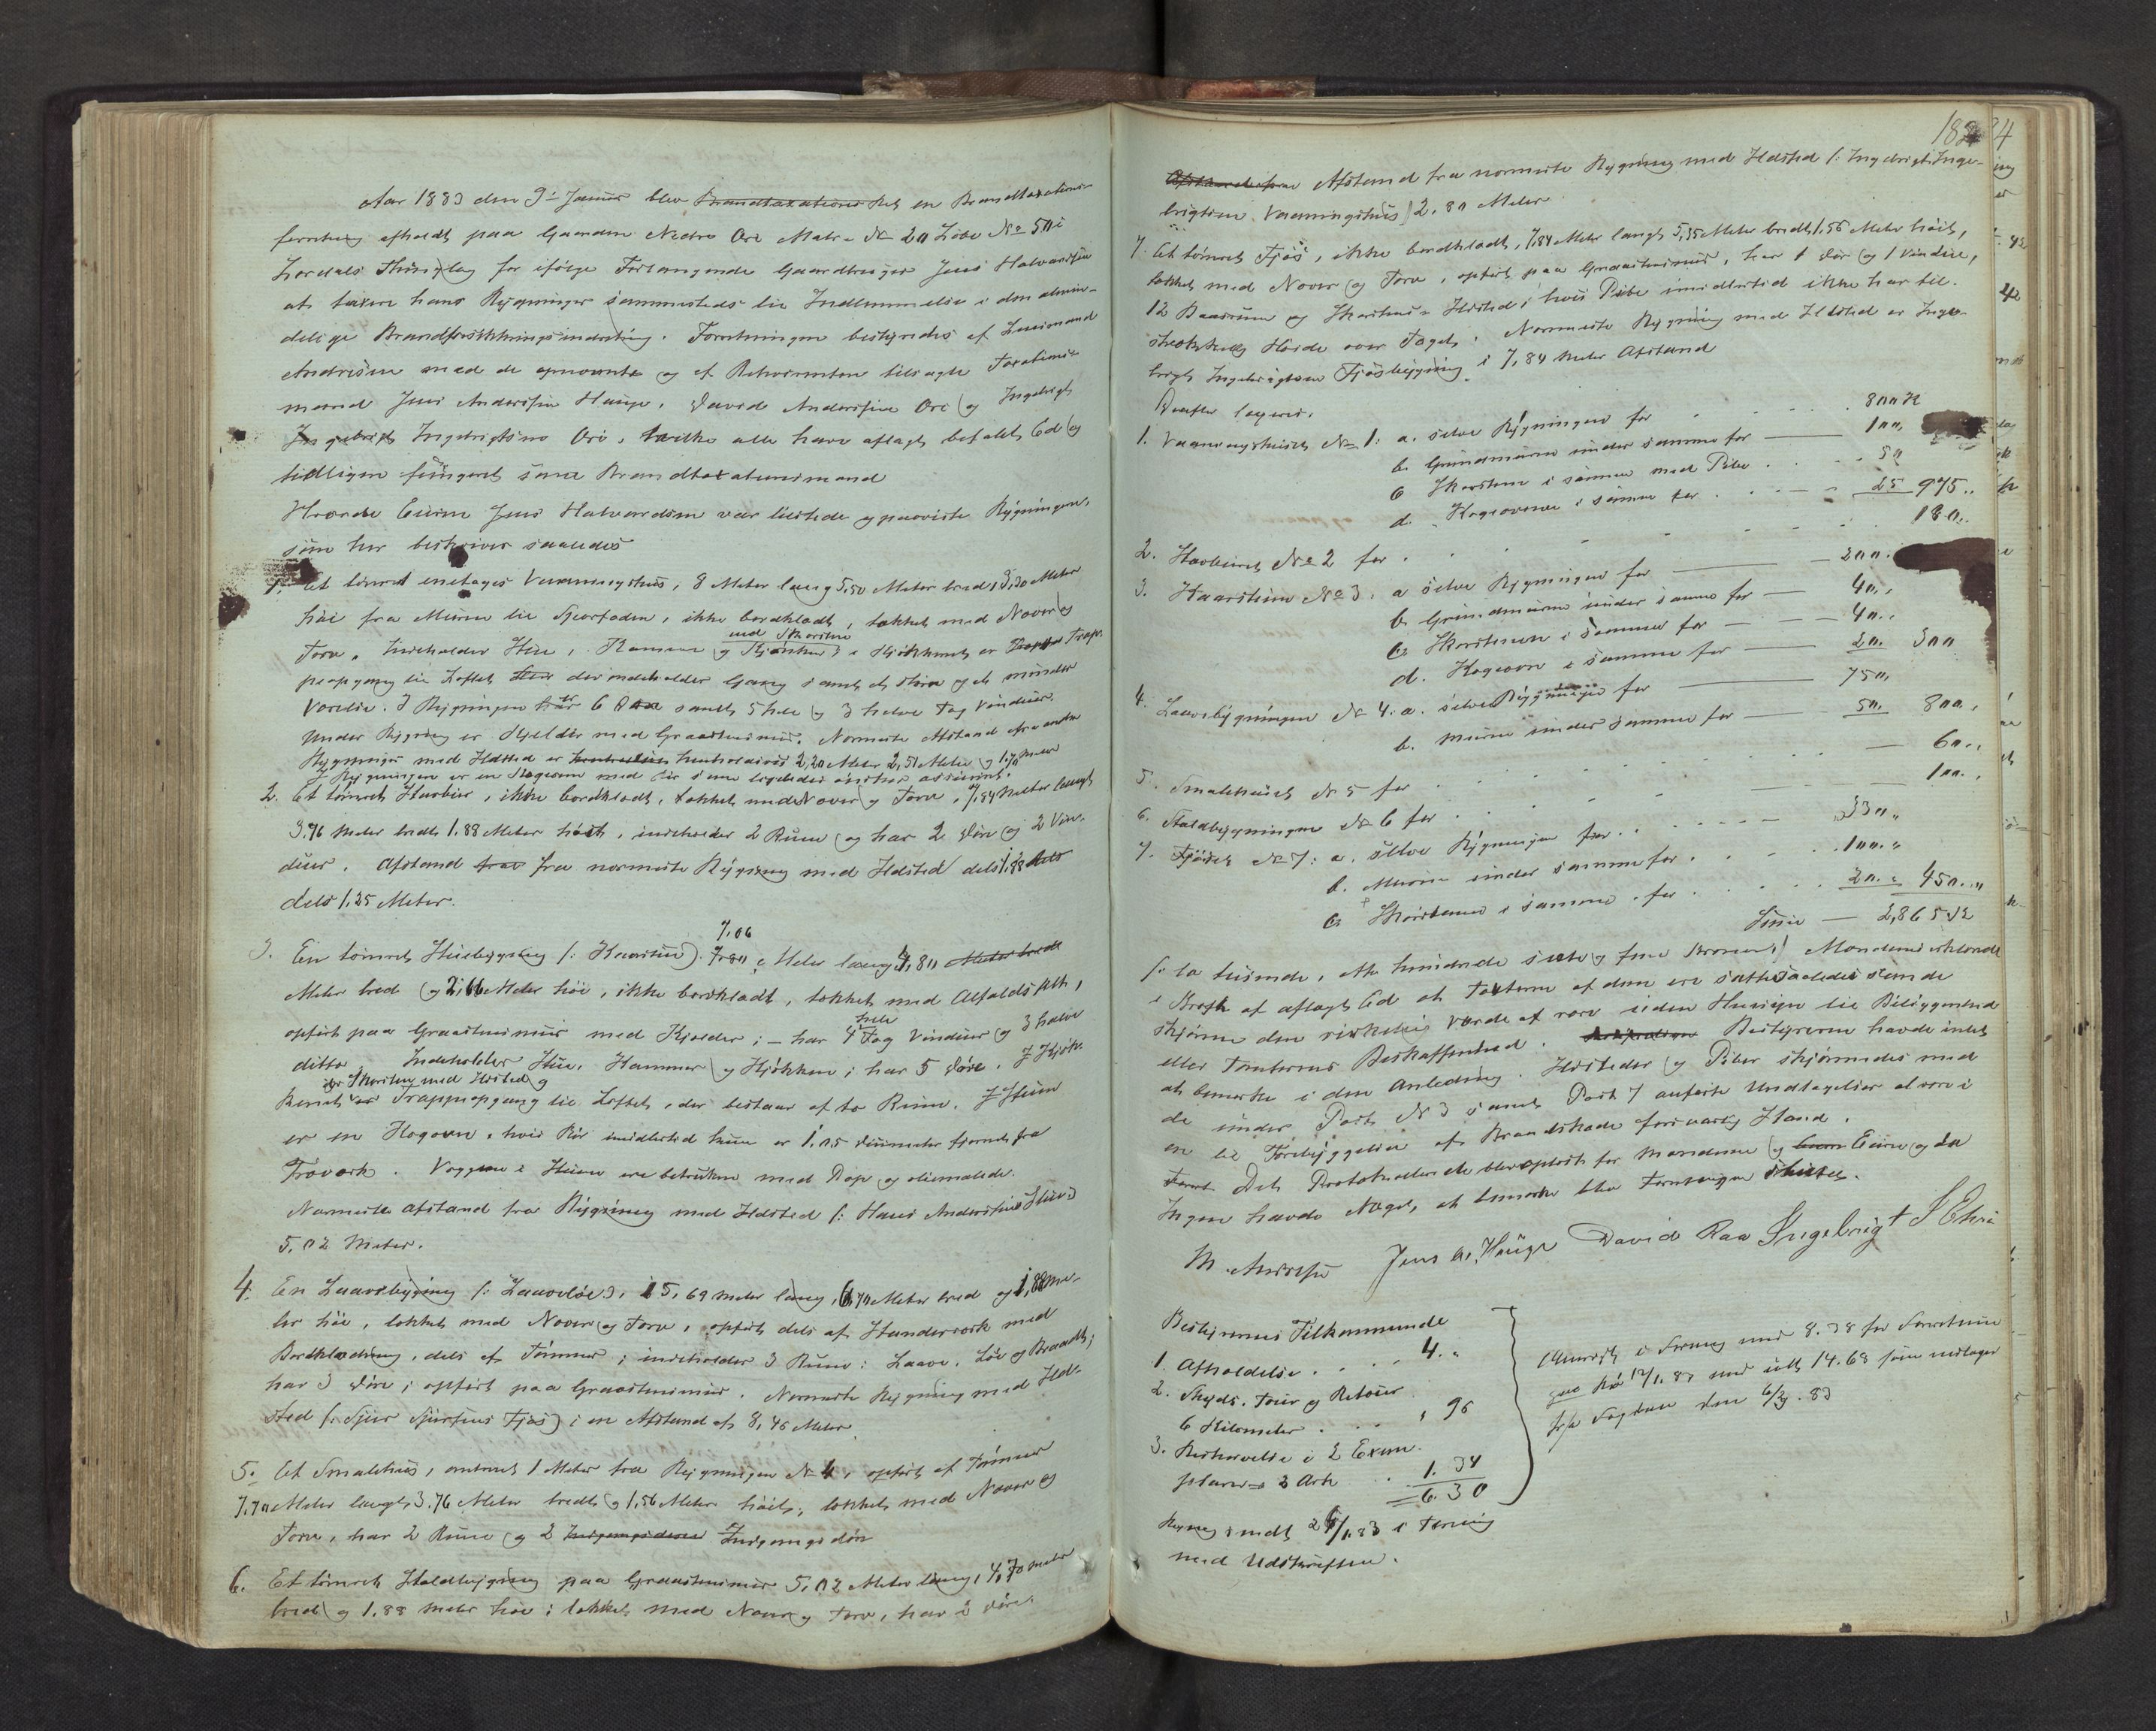 Aar 1883 den 9de Januar blev Brandtaxations Ret en Brandtaxations
forretning afholdt paa Gaarden Nedre Ori Matr. No 20 Løbe No 50 i
Lærdals Thinglag for ifølge Forlangende Gaardbruger Jens Halvardsen
at taxere hans Bygninger sammesteds til Indlemmelse i den almin-
delige Brandforsikkringsindretning. Forretningen bestyredes af Lensmand
Andresen med de opnævnte og af Rekvirenten tilsagte Taxations-
mænd Jens Andersen Hauge, David Andersen Ori og Ingebrigt
Ingebrigt Ingebrigtsen Ori, hvilke alle have aflagt befalet Ed og
tidligere fungeret som Brandtaxationsmænd
Eieren Jens Halvardsen var tilstede og paaviste Bygningerne,
som her beskrives saaledes
1. Et tømret enetages Vaaningshus, 8 Meter lang 5,50 Meter bred, 3,30 Meter
høi fra Muren til Sperfoden, ikke bordklædt, takket med Næver og
Torv, indeholder Stue, Kammer og Kjøkken; i Kjøkkenet er Trap-
med Skorsten
peopgang til Loftet der indeholder Gang samt et større og et mindre
Værelse. I Bygningen er 6 Døre samt 5 hele og 3 halve Fag Vinduer.
Under Bygning er Kjelder med Graastensmur. Nærmeste Afstand fra andre
Bygninger med Ildsted er henholdsvis 2,20 Meter 2,51 Meter og 1,70 Meter
I Bygningen er en Kogeovn med Rør som ligeledes ønskes assureret.
2. Et tømret Stabur, ikke bordklædt, takket med Næver og Torv, 7,84 Meter langt
3,76 Meter bredt 1,88 Meter høit, indeholder 2 Rum og har 2 Døre og 2 Vin-
duer. Afstand fra fra nærmeste Bygning med Ildsted dels 1,88 dels
dels 1,25 Meter.
3. En tømret Husbygning (: Haarstue) 7,80 Meter lang 4,80 Meter bredt
7,06
Meter bred og 2,66 Meter høi, ikke bordklædt, takket med
opført paa Graastensmur med Kjelder; – har 4 Fag Vinduer og 3 halve
hele
ditto Indeholder Stue, Kammer og Kjøkken; har 5 Døre. I Kjøk-
kenet er Trappeopgang til Loftet, der bestaar af to Rum. I Stuen
der Skorsten med Ildsted og
er en Kogovn, hvis Rør imidlertid kun er 1,05 Decimeter fjernet fra
Træværk. Væggene i Stuen ere betrukne med Pap og oliemalede.
Nærmeste Afstand fra Bygning med Ildsted (: Hans Andersens Stue)
5,02 Meter.
4. En Laavebygning (: Laaveløe), 15,69 Meter lang, 6,70 Meter bred og 1,88 Me-
ter høi, takket med Næver og Torv, opført dels af Stenderværk med
Bordklædning, dels af Tømmer; indeholder 3 Rum: Laave, Løe og
har 3 Døre; opført paa Graastensmur. Nærmeste Bygning med Ild-
sted (: Sjur Sjursens Fjøs) i en Afstand af 8,46 Meter.
5. Et Smalehus, omtrent 1 Meter fra Bygningen No 4, opført af Tømmer
7,70 Meter langt 3,76 Meter bredt og 1,56 Meter høit, takket med Næver og
Torv, har 2 Rum og 2 Indgangsdøre Indgangsdør
6. Et tømret Staldbygning paa Graastensmur 5,02 Meter lang, 4,70 Meter
bred og 1,88 Meter høi; takket med Næver og Torv, har 2 Døre
182
Afstand fra nærmeste Bygning med Ildsted (: Ingebrigt Inge-
brigtsens Vaaningshus) 2,80 Meter
7. Et tømret Fjøs, ikke bordklædt, 7,84 Meter langt 5,35 Meter bredt 1,56 Meter høit,
takket med Næver og Torv, opført paa Graastensmur, har 1 Dør og 1 Vindue,
12 Baasrum og Skorstens Ildsted; hvis Pibe imidlertid ikke har til-
strækkelig Høide over Taget. Nærmeste Bygning med Ildsted er Inge-
brigt Ingebrigtsens Fjøsbygning i 7,84 Meter Afstand
Derefter taxeres.
1. Vaaningshuset No 1: a. selve Bygningen for 800 Kr
b. Grundmuren under samme for — 100,
c Skorstene i samme med Pibe 50
d. Kogeovnen i samme for 25 975,,
2. Stabburet No 2 for 180,,
3. Haarstuen No 3: a selve Bygningen for — 200.
b. Grundmuren under samme for — 40,,
c. Skorstenen i samme for — 40,,
d. Kogeovn i samme for — 20. 300
4. Laavebygningen No 4: a. selve Bygningen for — 750,
b. Muren under samme for — 50, 800,
5. Smalehuset No 5 for 60,,
6. Staldbygningen No 6 for 100,,
7. Fjøset No 7: a. selve Bygningen for 330,,
b. Muren under samme for 100,,
c. Skorstenen i samme for 20,, 450,,
Summa — 2,865 Kr
(: to tusinde, otte hundrede sexti og fem Kroner) Mændene erklærede
i Kraft af aflagt Ed at Taxterne af dem ere satte saaledes som de
skjønne den virkelig Værdi at være uden Hensyn til Beliggenhed
eller Tomternes Beskaffenhed. Bestyreren havde intet
at bemerke i den Anledning. Ildsteder og Piber skjønnedes med
de under Post No 3 samt Post 7 anførte Undtagelser at være i
en til Forebyggelse af Brandskade forsvarlig Stand.
Det Protokollerede blev oplæst for Mændene og Eieren og da
Ingen havde Noget at bemerke blev Forretningen sluttet.
M. Andresen Jens A. Hauge David Raa Ingebrigt I Ehri
Bestyrerens Tilkommende
1. Afholdelse . . . 4. "
2. Skyds. Tour og Retour
6 Kilometer . . . , 96
3. Beskrivelse i 2 Exem-
plarer 2 Ark . . 1. 34
= 6. 30
med Udskriften.
6/3. 83